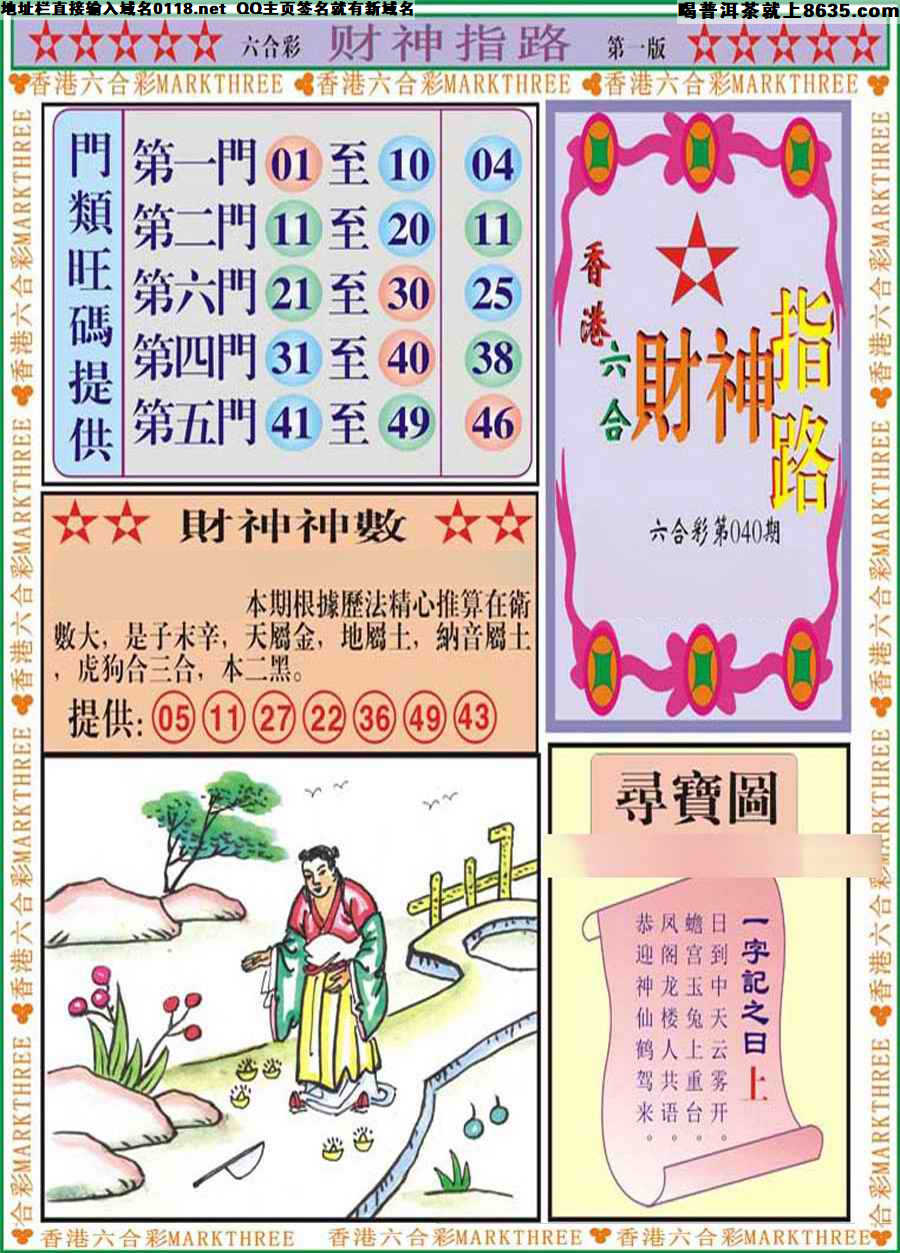 地址栏直接输入域名0118.net QQ主页签名就有新域名
喝普洱茶就上8635.com
六合彩 财神指路 第一版
香港六合彩MARKTHREE 香港六合彩MARKTHREE 香港六合彩MARKTHREE
門類旺碼提供
第一門 01 至 10 04
第二門 11 至 20 11
第六門 21 至 30 25
第四門 31 至 40 38
第五門 41 至 49 46
香港六合
財神指路
六合彩第040期
財神神數
本期根據歷法精心推算在衛
數大，是子末辛，天屬金，地屬土，納音屬土
，虎狗合三合，本二黑。
提供: 05 11 27 22 36 49 43
尋寶圖
一字記之日 上
日到中天云雾开。
蟾宫玉兔上重台。
凤阁龙楼人共语。
恭迎神仙鹤驾来。
香港六合彩MARKTHREE 香港六合彩MARKTHREE 香港六合彩MARKTHREE 香港六合彩MARKTHREE
香港六合彩MARKTHREE 香港六合彩MARKTHREE 香港六合彩MARKTHREE 合彩MARKTHREE
香港六合彩MARKTHREE 香港六合彩MARKTHREE 香港六合彩MARKTHREE